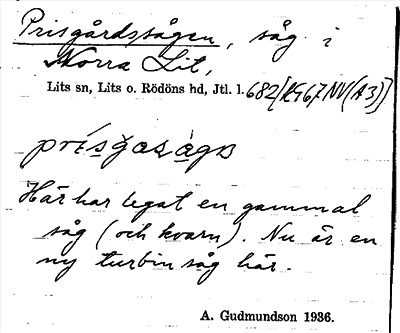 Prisgårdssågen, såg i
Norra Lit,
Lits sn, Lits o. Rödöns hd, Jtl. l. 682[RG67NV(A3)]
Här har legat en gammal
såg (och kvarn). Nu är en
ny turbinsåg här.
A. Gudmundson 1936.